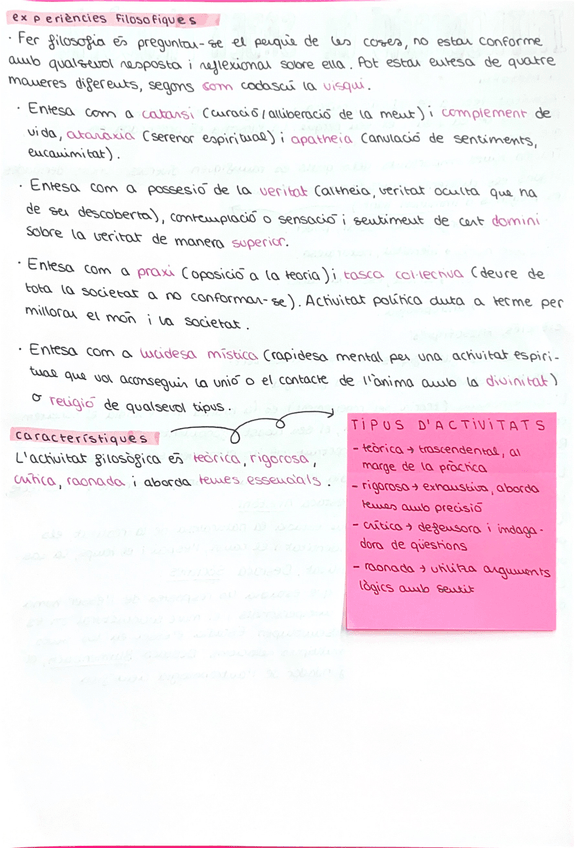 experiències filosofiques
· Fer filosofia és preguntar-se el perquè de les coses, no estar conforme
amb qualsevol resposta i reflexionar sobre ella. Pot estar entesa de quatre
maneres diferents, segons com cadascú la visqui.
· Entesa com a catarsi (curació/alliberació de la ment) i complement de
vida, ataràxia (serenor espiritual) i apatheia (anulació de sentiments,
ecuanimitat).
· Entesa com a possesió de la veritat (altheia, veritat oculta que ha
de ser descoberta), contemplació o sensació i sentiment de cert domini
sobre la veritat de manera superior.
· Entesa com a praxi (oposició a la teoria) i tasca col·lectiva (deure de
tota la societat a no conformar-se). Activitat política duta a terme per
millorar el món i la societat.
· Entesa com a lucidesa mística (rapidesa mental per una activitat espiri-
tual que vol aconseguir la unió o el contacte de l'ànima amb la divinitat)
o religió de qualsevol tipus.
característiques
L'activitat filosòfica és teòrica, rigorosa,
crítica, raonada i aborda temes essencials.
TIPUS D'ACTIVITATS
- teòrica → trascendental, al
marge de la pràctica
- rigorosa → exhaustiva, aborda
temes amb precisió
- crítica → defensora i indaga-
dora de qüestions
- raonada → utilitza arguments
lògics amb sentit